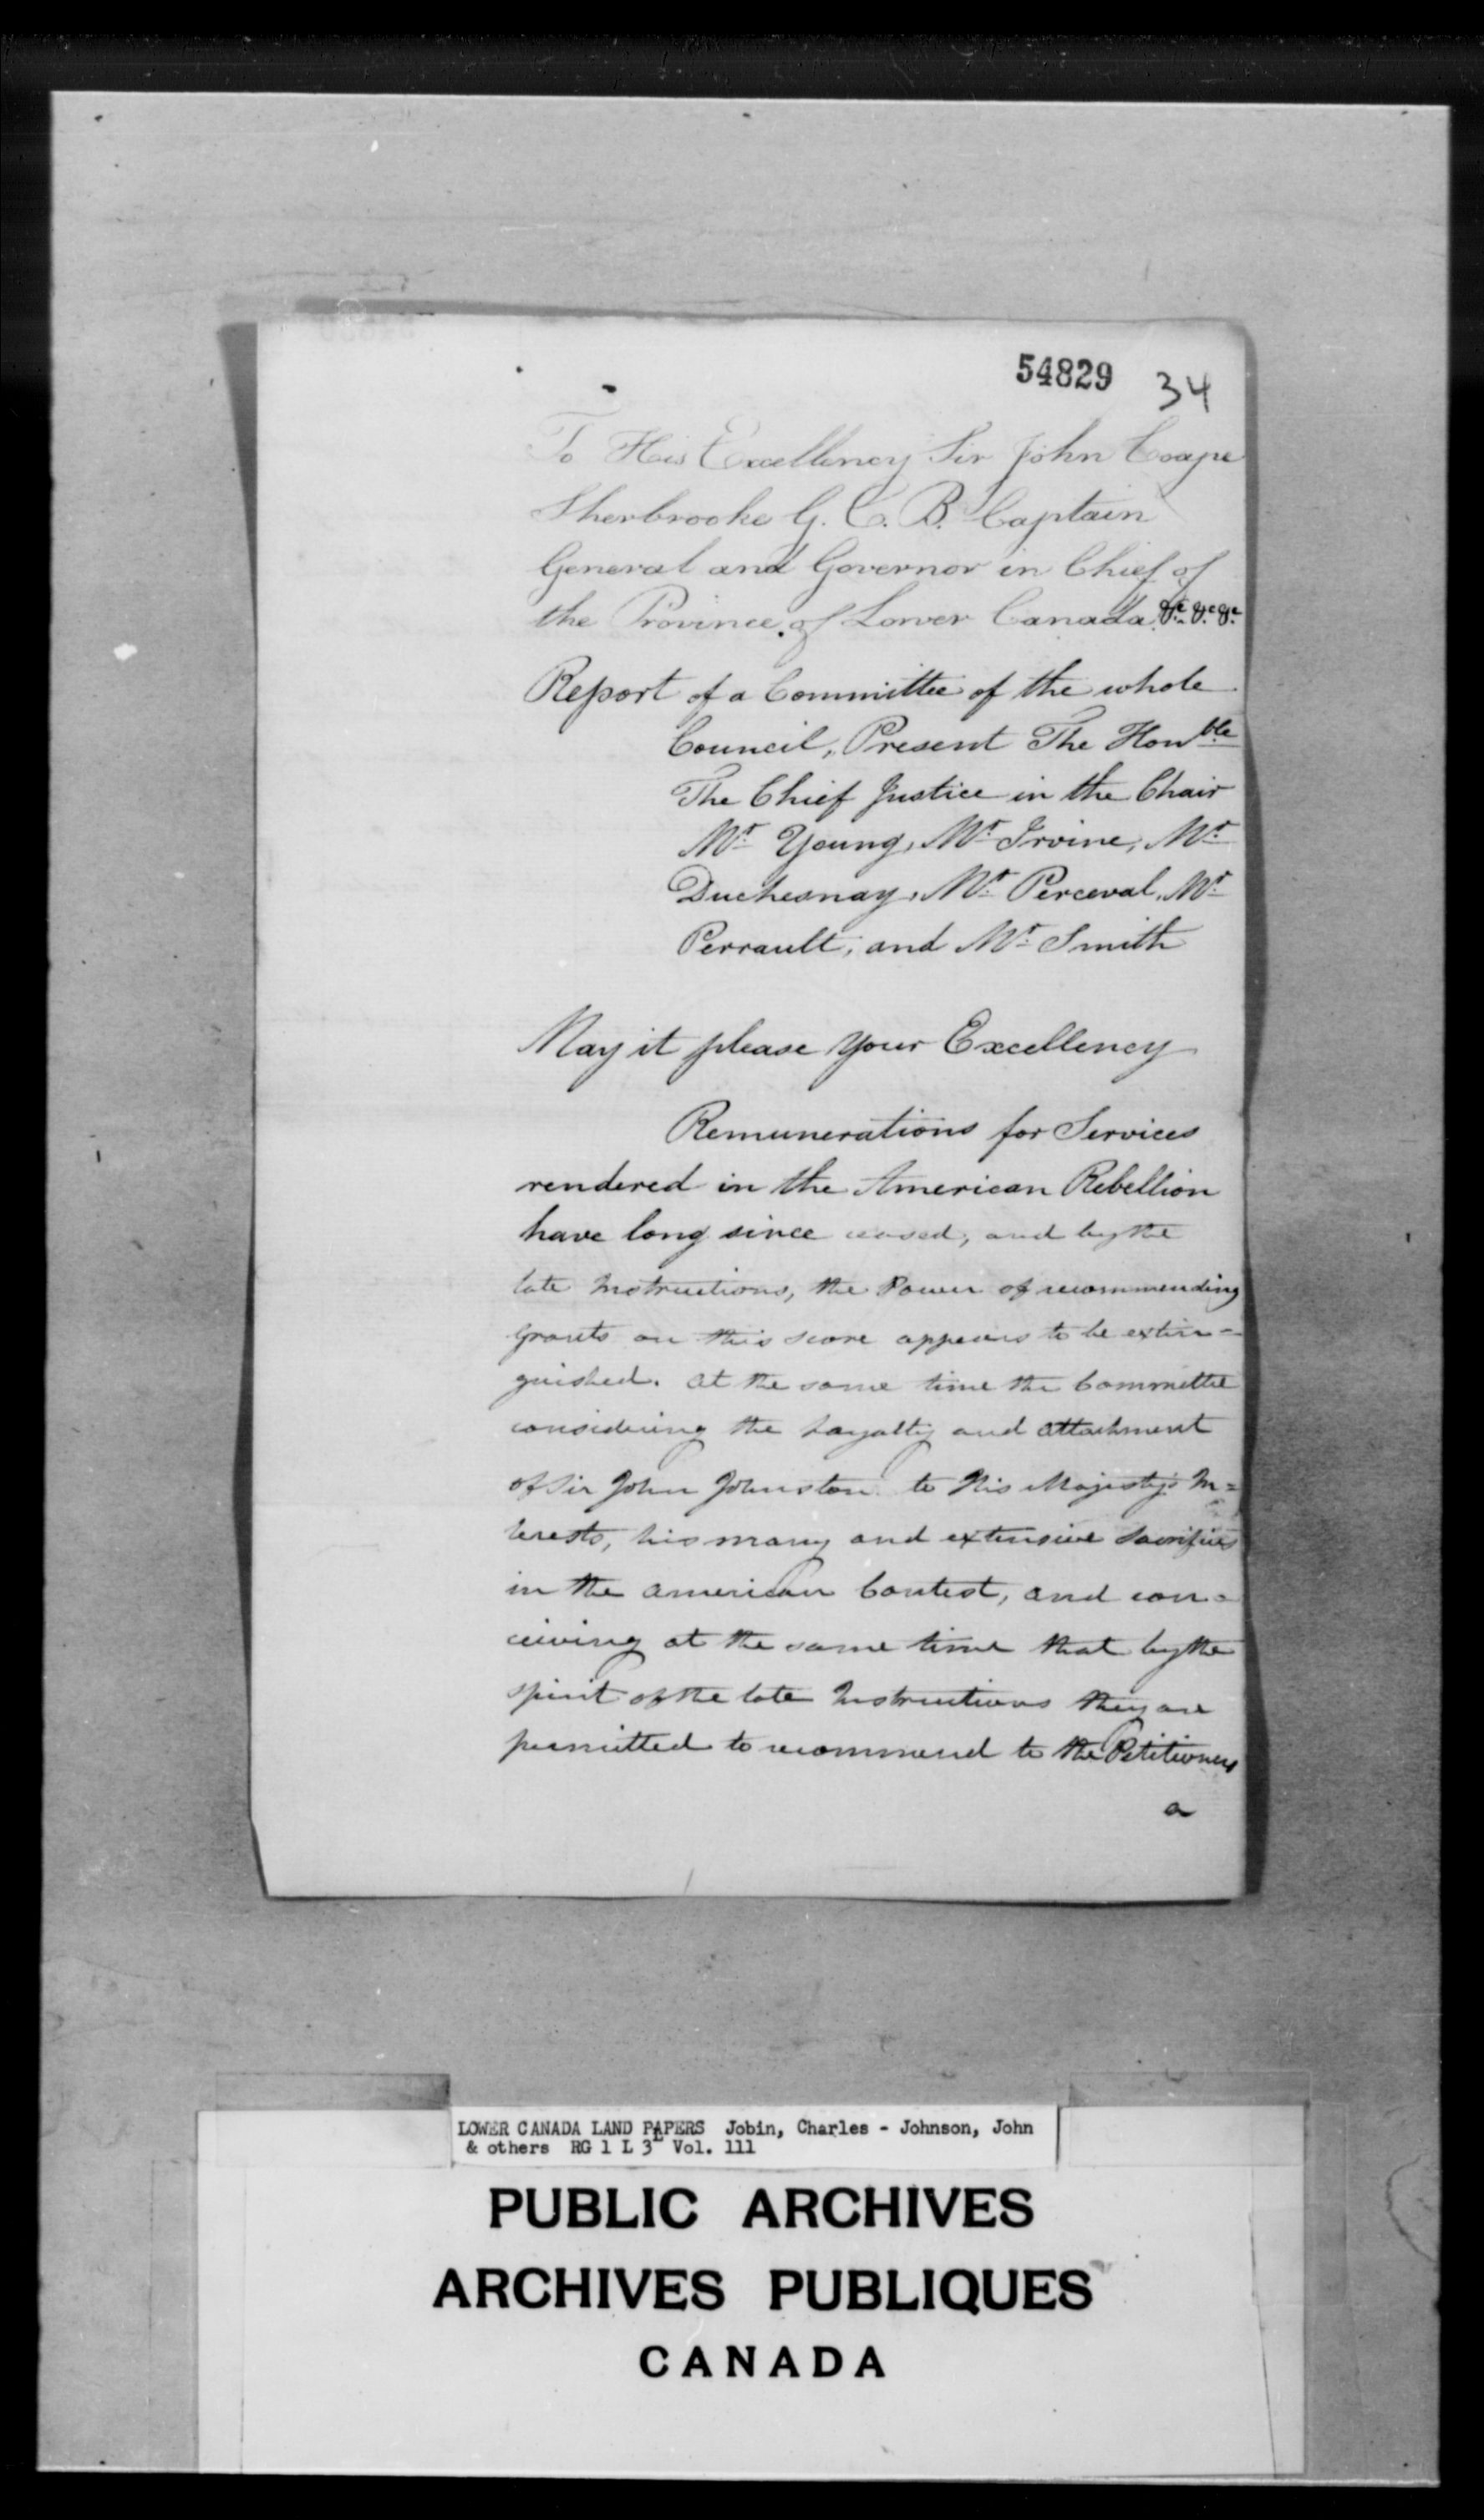 54829 34
To His Excellency Sir John Coape
Sherbrooke G. C. B. Captain
General and Governor in Chief of
the Province of Lower Canada &c. &c. &c.
Report of a Committee of the whole
Council, Present The Honble
The Chief Justice in the Chair
Mr. Young, Mr. Irvine, Mr.
Duchesnay, Mr. Perceval, Mr.
Perrault, and Mr. Smith
May it please your Excellency
Remunerations for Services
rendered in the American Rebellion
have long since ceased, and by the
late Instructions, the Power of recommending
grants on this score appears to be extin-
guished. At the same time the Committee
considering the Loyalty and attachment
of Sir John Johnston to His Majesty's In=
terests, his many and extensive sacrifices
in the American Contest, and con=
ceiving at the same time that by the
spirit of the late Instructions they are
permitted to recommend to the Petitioners
a
LOWER CANADA LAND PAPERS Jobin, Charles - Johnson, John
& others RG 1 L 3L Vol. 111
PUBLIC ARCHIVES
ARCHIVES PUBLIQUES
CANADA